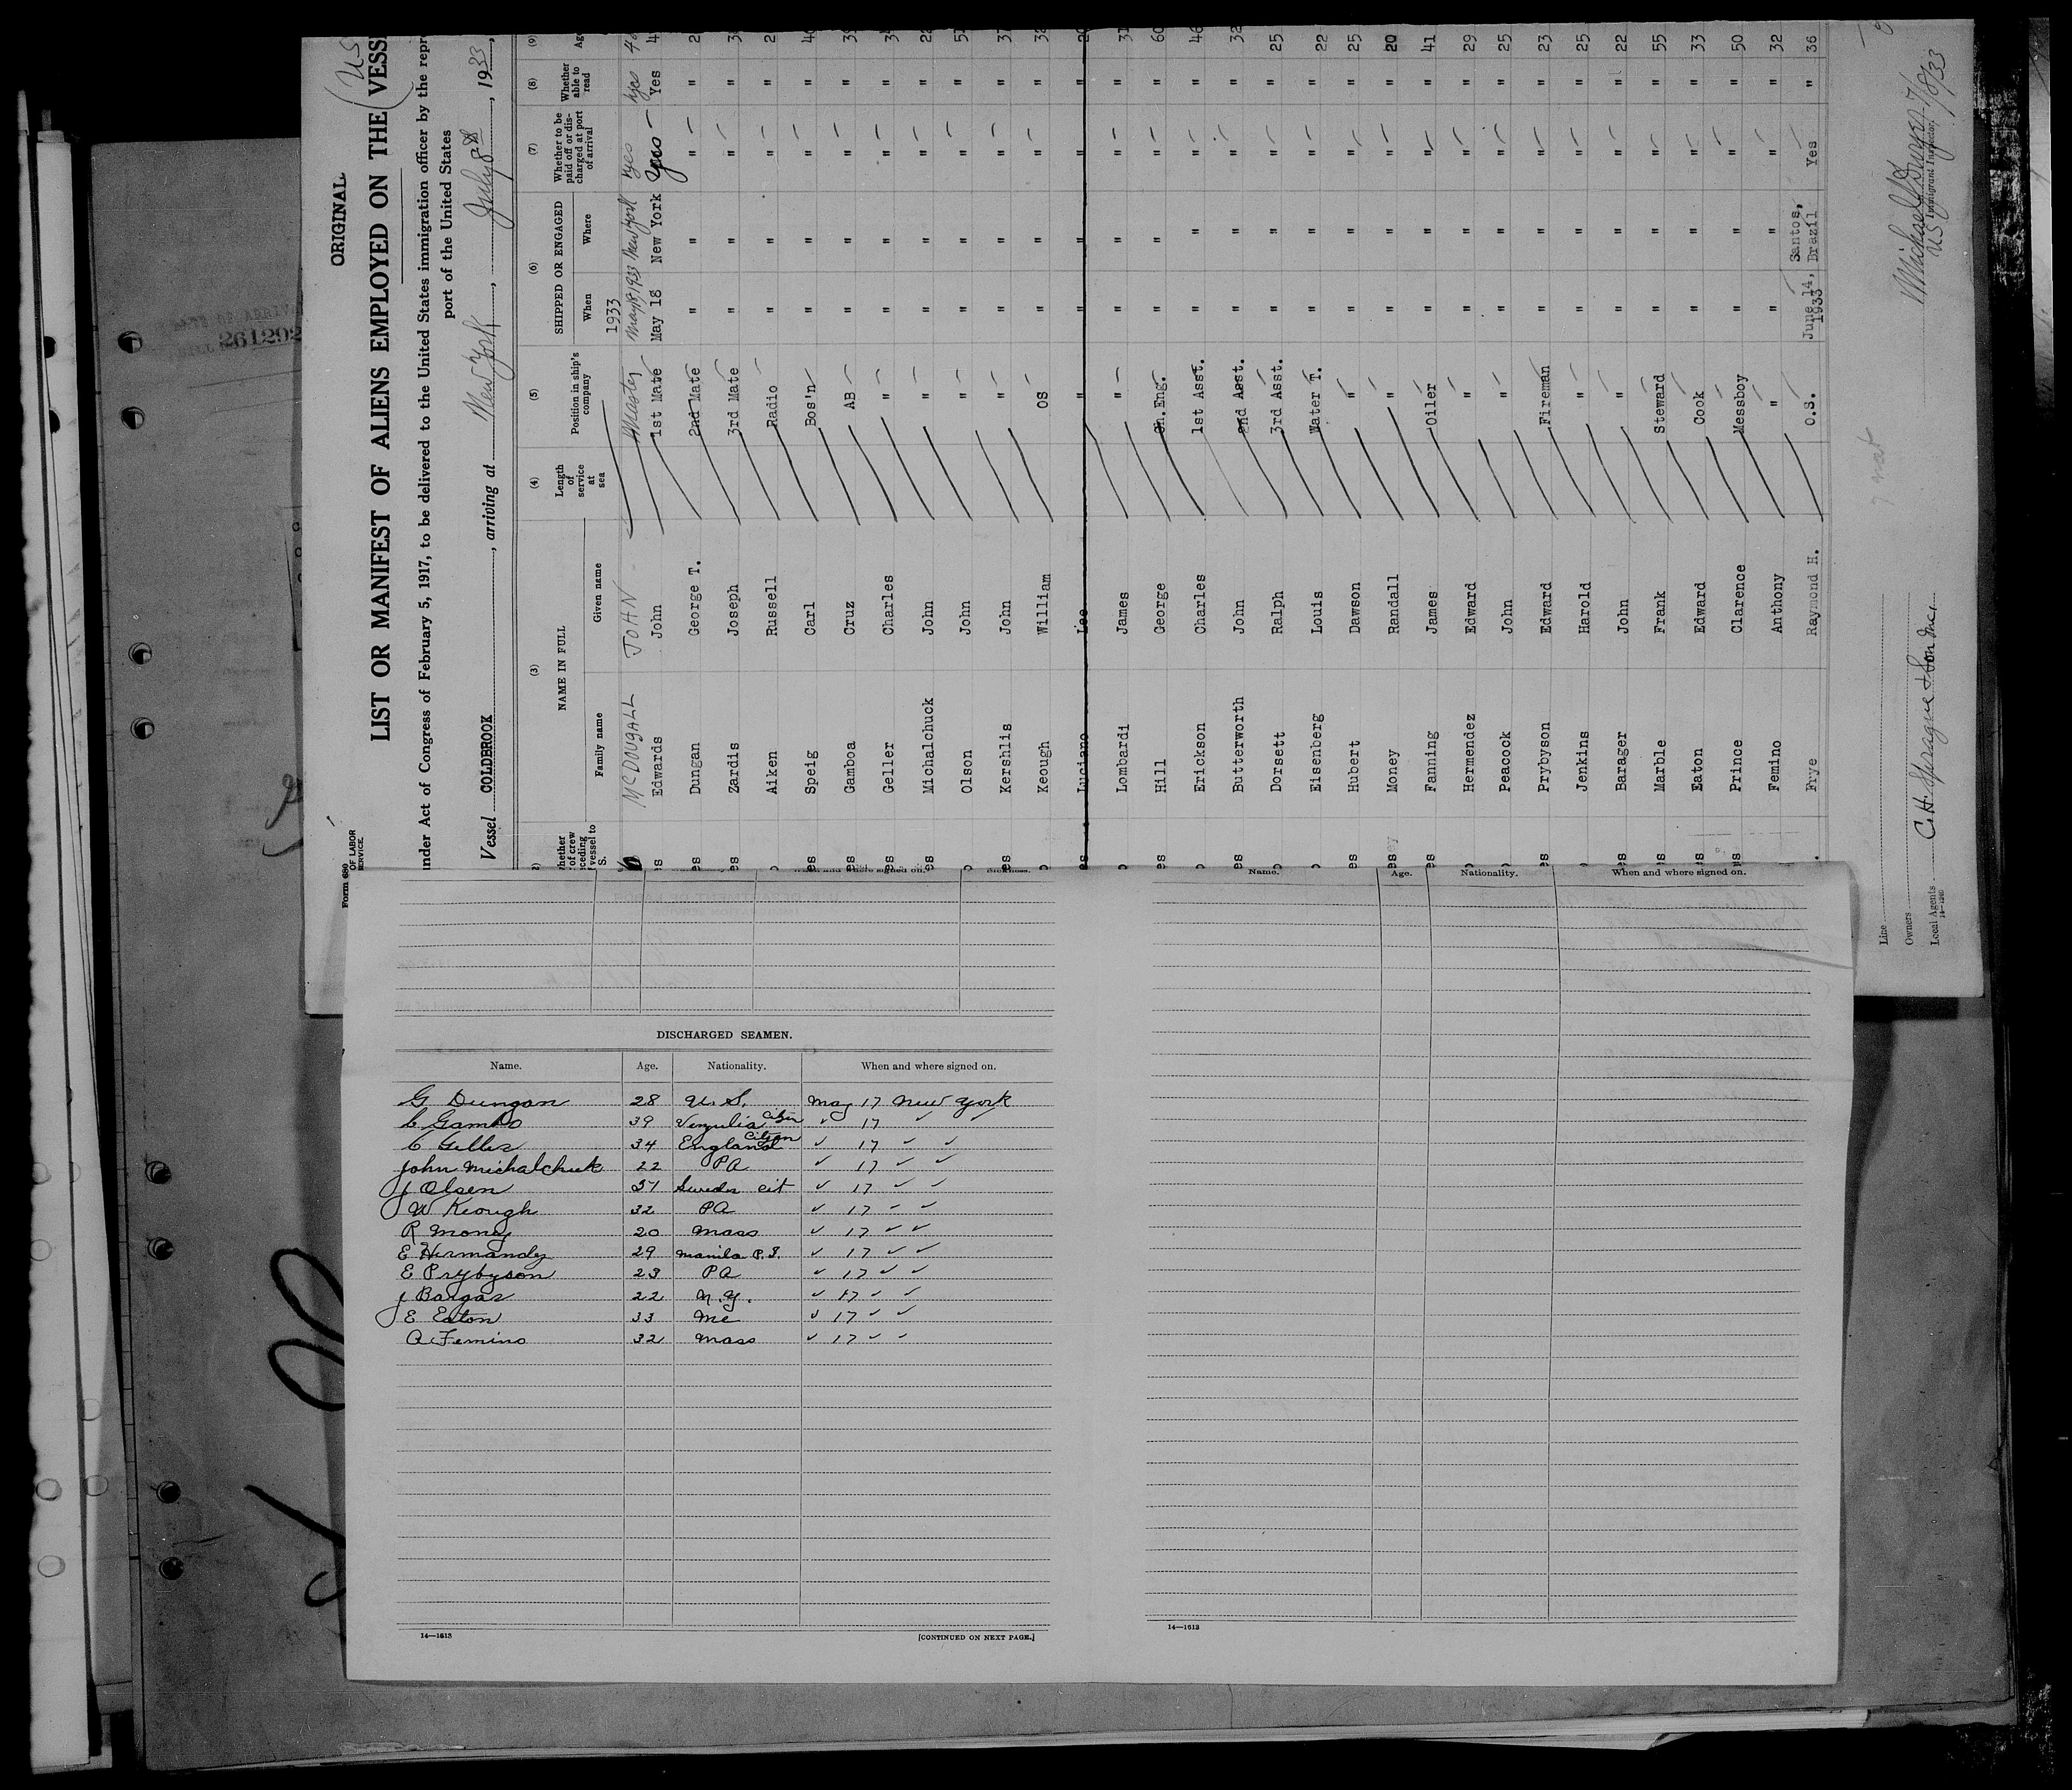 ORIGINAL
LIST OR MANIFEST OF ALIENS EMPLOYED ON THE VESS
under Act of Congress of February 5, 1917, to be delivered to the United States immigration officer by the repr
port of the United States
Vessel COLDBROOK, arriving at New York, July 8th, 1933,
Form 680
OF LABOR
SERVICE.
(3) (4) (5) (6) (7) (8) (9)
NAME IN FULL
Family name Given name
Length of service at sea
Position in ship's company
SHIPPED OR ENGAGED
When Where
Whether to be paid off or discharged at port of arrival
Whether able to read
1933
MCDOUGALL JOHN Master May 18, 1933 New York yes yes
Edwards John 1st Mate May 18 New York Yes Yes 4
Dungan George T. 2nd Mate " " " " 2
Zardis Joseph 3rd Mate " " " " 3
Aiken Russell Radio " " " " 2
Speig Carl Bos'n " " " "
Gamboa Cruz AB " " " "
Geller Charles " " " " "
Michalchuck John " " " " " 22
Olson John " " " " "
Kershlis John " " " " "
Keough William OS " " " " 32
Luciano Lee " " " " " 20
Lombardi James " " " " " 31
Hill George Ch.Eng. " " " " 60
Erickson Charles 1st Asst. " " " " 46
Butterworth John 2nd Asst. " " " " 32
Dorsett Ralph 3rd Asst. " " " " 25
Eisenberg Louis Water T. " " " " 22
Hubert Dawson " " " " " 25
Money Randall " " " " " 20
Fanning James Oiler " " " " 41
Hermendez Edward " " " " " 29
Peacock John " " " " " 25
Prybyson Edward Fireman " " " " 23
Jenkins Harold " " " " " 25
Barager John " " " " " 22
Marble Frank Steward " " " " 55
Eaton Edward Cook " " " " 33
Prince Clarence Messboy " " " " 50
Femino Anthony " " " " " 32
Frye Raymond H. O.S. June 14, 1933 Santos, Brazil Yes " 36
Line
Owners
Local Agents C. H. Sprague & Son Inc.
14—1240
US Immigrant Inspector. 7/8/33
Name. Age. Nationality. When and where signed on.
DISCHARGED SEAMEN.
Name. Age. Nationality. When and where signed on.
G Dungan 28 U. S. May 17 New York
C Gambo 39 Venzulia Citzn ✓ 17 ✓ ✓
C Geller 34 England Citzen ✓ 17 ✓ ✓
John Michalchuck 22 PA ✓ 17 ✓ ✓
J Olsen 51 Sweden cit ✓ 17 ✓ ✓
W Keough 32 PA ✓ 17 ✓ ✓
R Money 20 Mass ✓ 17 ✓ ✓
E Hermandz 29 Manila P.I. ✓ 17 ✓ ✓
E Prybyson 23 PA ✓ 17 ✓ ✓
J Bargar 22 N.Y. ✓ 17 ✓ ✓
E Eaton 33 Me ✓ 17 ✓ ✓
A Femino 32 Mass ✓ 17 ✓ ✓
14—1613
[CONTINUED ON NEXT PAGE.]
14—1613